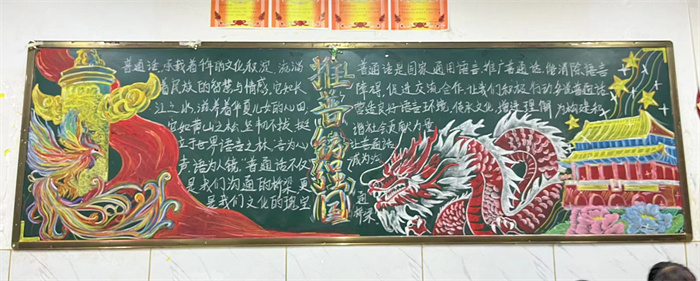 普通话,承载着的文化积淀,流淌
着民族的智慧与情感。它如长
江之水,滋养着华夏儿女的心田
它如黄山之松,坚韧不拔,挺
立于世界语言之林,"言为心
声,语为人镜"普通话不仅
是我们沟通的桥梁,更
是我们文化的瑰宝
推普
普通话是国家通用语言,推广普通话,能消除语言
障碍,促进交流合作,让我们积极行动普通话
营造良好语言环境,传承文化,增进理解,为构建和
谐社会贡献力量
让普通话
成为沟
通
桥梁.